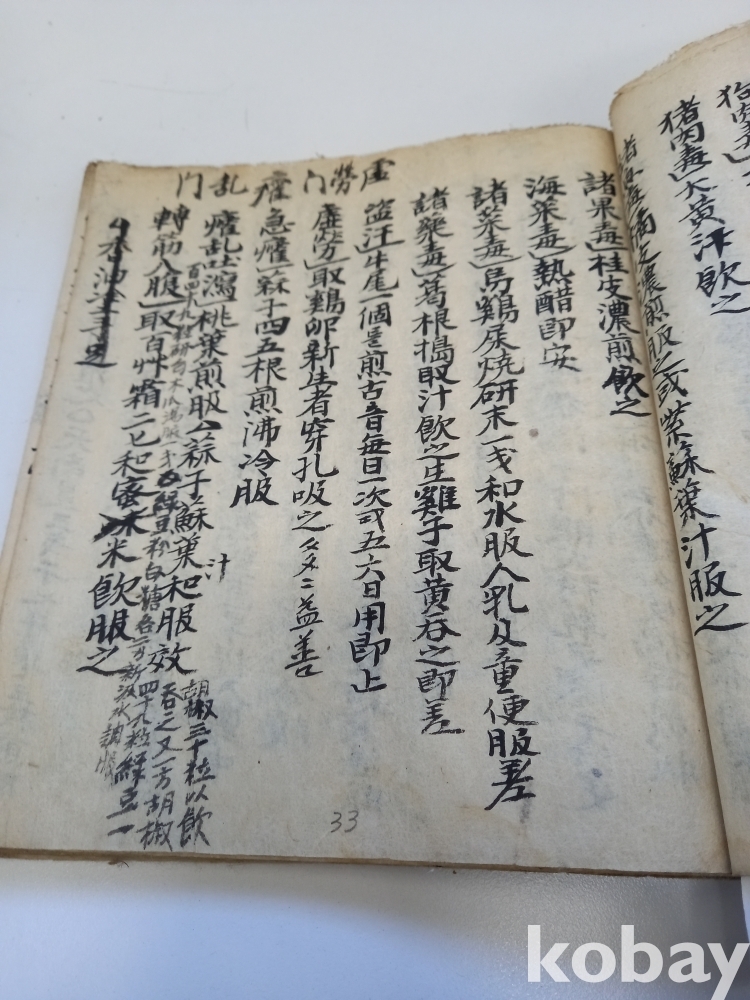 狗肉毒
猪肉毒 大黄汁飮之
煎服之或紫蘇葉汁服之
諸果毒 桂皮濃煎飮之
海菜毒 熱醋即安
諸菜毒 烏鷄屎燒研末一戋和水服人乳及童便服差
諸藥毒 葛根搗取汁飮之生雞子取黄吞之即差
盜汗 牛尾一個 煎古音每日一次或五六日用即止
虛勞門
虛勞 取鷄卵新生者穿孔吸之多多益善
急癨 蒜子四五根煎沸冷服
癨乱門
癨乱吐瀉 桃葉煎服 蒜子蘇葉汁和服效
胡椒三十粒以飮
吞之又一方胡椒
四十九粒綠豆一
百四十九粒研
綠豆粉白糖各二
新汲水調服
轉筋入腹 取百艸霜二匕和米飮服之
33
kobay